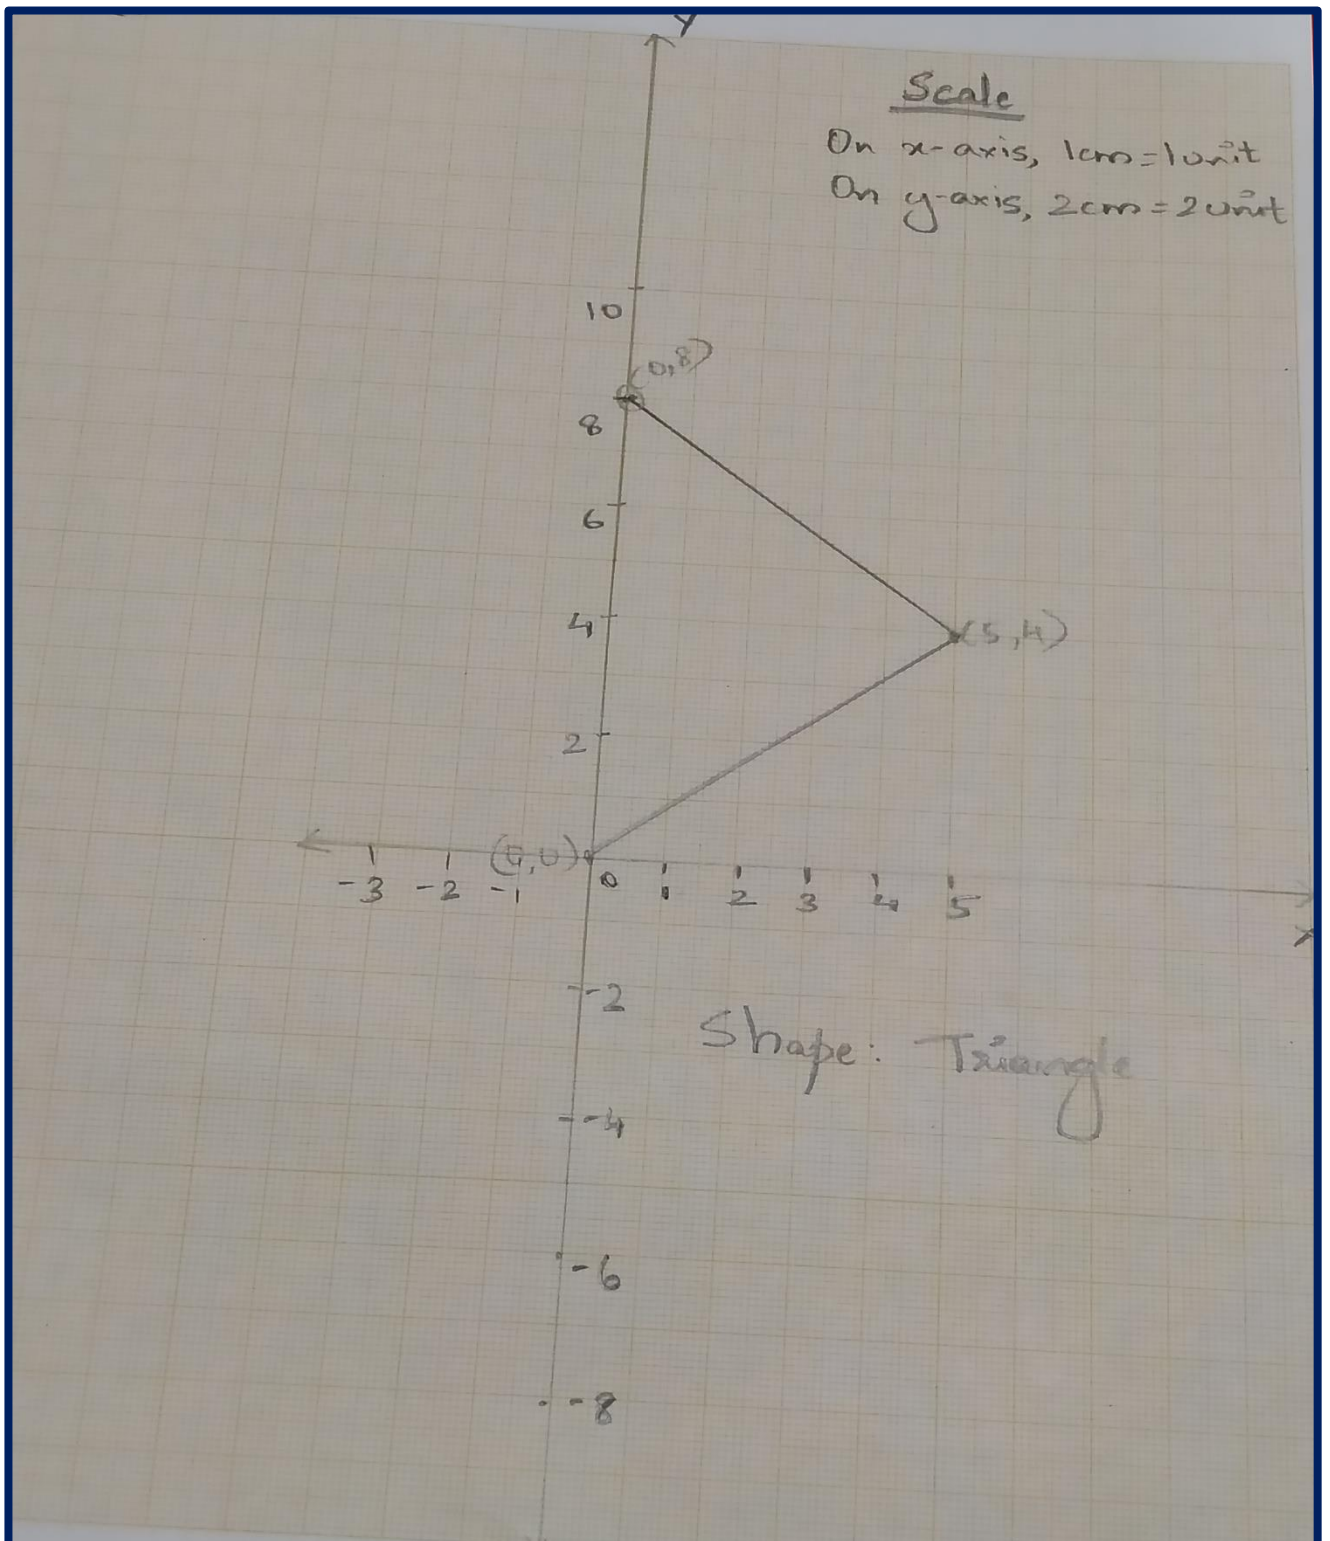 Y
Scale
On x-axis, 1cm=1unit
On y-axis, 2cm=2unit
10
(0,8)
8
6
4
(5,4)
2
(0,0)
-3 -2 -1 0 1 2 3 4 5
X
-2
Shape: Triangle
-4
-6
-8